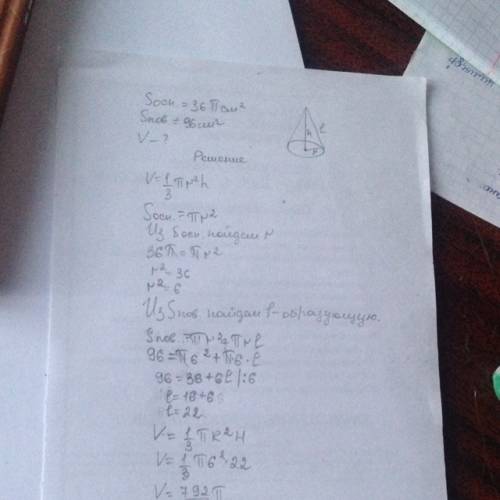 Sосн. = 36π см²
Sпов = 96 см²
V – ?
h
l
r
Решение
V = 1/3 πr²h
Sосн. = πr²
Из Sосн. найдем r
36π = πr²
r² = 36
r² = 6
Из Sпов. найдем l – образующую.
Sпов. = πr² + πrl
96 = π6² + π6·l
96 = 36 + 6l /:6
l = 16 + 6
l = 22
V = 1/3 πR²H
V = 1/3 π6²·22
V = 792 π